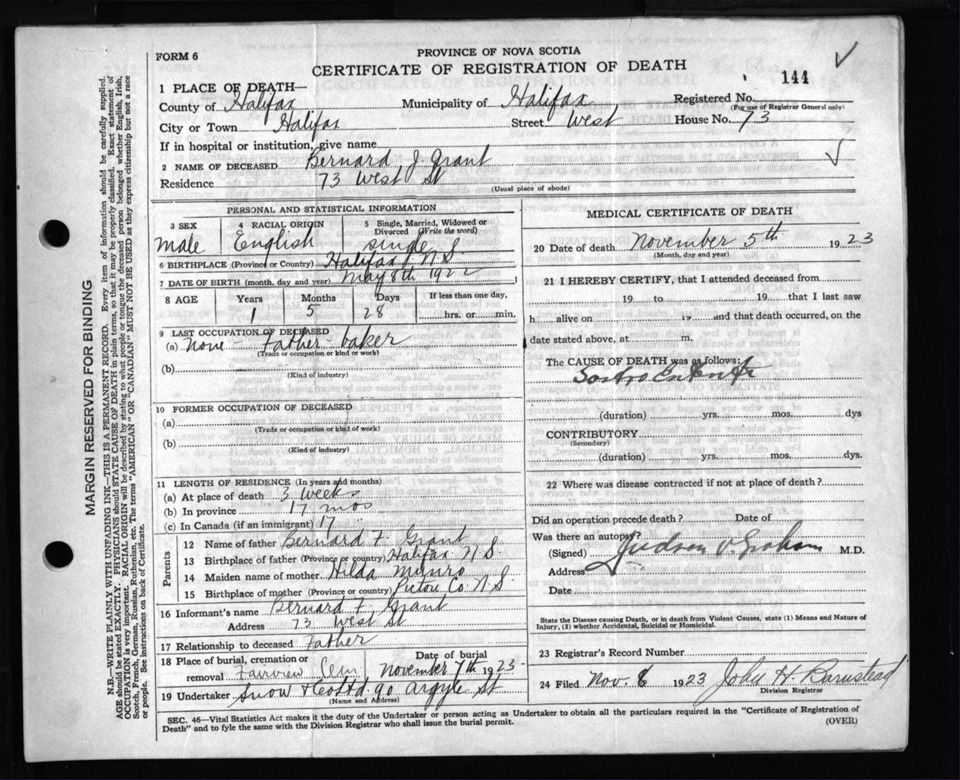 FORM 6
PROVINCE OF NOVA SCOTIA
CERTIFICATE OF REGISTRATION OF DEATH
144
1 PLACE OF DEATH—
County of Halifax Municipality of Halifax Registered No.
(For use of Registrar General only)
City or Town Halifax Street West House No. 73
If in hospital or institution, give name
2 NAME OF DECEASED Bernard J. Grant
Residence 73 West St
(Usual place of abode)
PERSONAL AND STATISTICAL INFORMATION
3 SEX
male
4 RACIAL ORIGIN
English
5 Single, Married, Widowed or
Divorced (Write the word)
single
6 BIRTHPLACE (Province or Country) Halifax N S
7 DATE OF BIRTH (month, day and year) May 8th 1922
8 AGE Years Months Days If less than one day,
1 5 28 hrs. or min.
9 LAST OCCUPATION OF DECEASED
(a) none - Father - baker
(Trade or occupation or kind of work)
(b)
(Kind of industry)
10 FORMER OCCUPATION OF DECEASED
(a)
(Trade or occupation or kind of work)
(b)
(Kind of industry)
11 LENGTH OF RESIDENCE (In years and months)
(a) At place of death 3 weeks
(b) In province 17 mos
(c) In Canada (if an immigrant) 17
Parents
12 Name of father Bernard F. Grant
13 Birthplace of father (Province or country) Halifax N S
14 Maiden name of mother Hilda Munro
15 Birthplace of mother (Province or country) Pictou Co N S
16 Informant's name Bernard F. Grant
Address 73 West St
17 Relationship to deceased Father
18 Place of burial, cremation or Date of burial
removal Fairview Cem November 7th 1923
19 Undertaker Snow & Co Ltd 90 Argyle St
(Name and Address)
MEDICAL CERTIFICATE OF DEATH
20 Date of death November 5th 1923
(Month, day and year)
21 I HEREBY CERTIFY, that I attended deceased from
19 to 19 that I last saw
h alive on 19 and that death occurred, on the
date stated above, at m.
The CAUSE OF DEATH was as follows:
(duration) yrs. mos. dys
CONTRIBUTORY
(Secondary)
(duration) yrs. mos. dys.
22 Where was disease contracted if not at place of death?
Did an operation precede death? Date of
Was there an autopsy?
(Signed) Judson V Graham M.D.
Address
State the Disease causing Death, or in death from Violent Causes, state (1) Means and Nature of
Injury, (2) whether Accidental, Suicidal or Homicidal.
23 Registrar's Record Number
24 Filed Nov. 8 1923 John H Barnstead
Division Registrar
SEC. 46—Vital Statistics Act makes it the duty of the Undertaker or person acting as Undertaker to obtain all the particulars required in the "Certificate of Registration of
Death" and to fyle the same with the Division Registrar who shall issue the burial permit.
(OVER)
MARGIN RESERVED FOR BINDING
N.B—WRITE PLAINLY WITH UNFADING INK—THIS IS A PERMANENT RECORD. Every item of information should be carefully supplied.
AGE should be stated EXACTLY. PHYSICIANS should STATE CAUSE OF DEATH in plain terms, so that it may be properly classified. Exact statement of
OCCUPATION is very important. RACIAL ORIGIN will be described by stating to what people or tongue the deceased person belonged whether English, Irish,
Scotch, French, German, Russian, Ruthenian, etc. The terms "AMERICAN" OR "CANADIAN" MUST NOT BE USED as they express citizenship but not a race
or people. See instructions on back of Certificate.